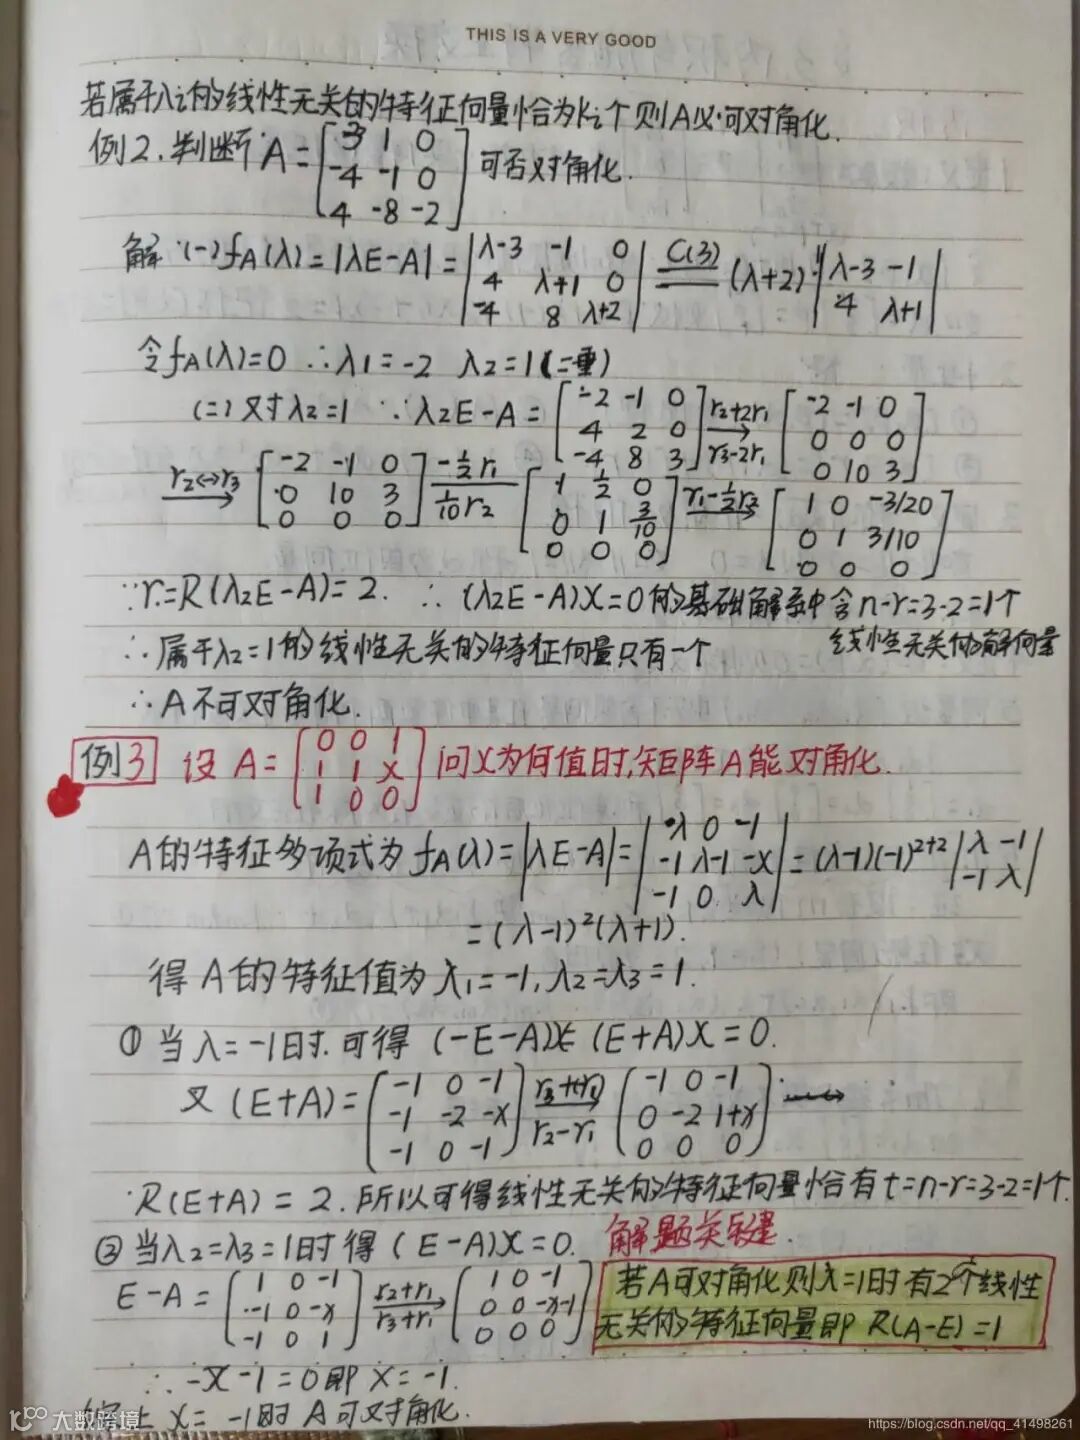 THIS IS A VERY GOOD
若属于λi的线性无关的特征向量恰为ki个则A必可对角化.
例2.判断A=[3 1 0; -4 -1 0; 4 -8 -2]可否对角化.
解:(一)fA(λ)=|λE-A|=|λ-3 -1 0; 4 λ+1 0; -4 8 λ+2| C(3) (λ+2)·|λ-3 -1; 4 λ+1|
令fA(λ)=0 ∴λ1=-2 λ2=1(二重)
(二)对λ2=1 ∵λ2E-A=[-2 -1 0; 4 2 0; -4 8 3] r2+2r1 r3-2r1 → [-2 -1 0; 0 0 0; 0 10 3]
r2↔r3 → [-2 -1 0; 0 10 3; 0 0 0] -1/2r1 1/10r2 [1 1/2 0; 0 1 3/10; 0 0 0] r1-1/2r2 → [1 0 -3/20; 0 1 3/10; 0 0 0]
∵r=R(λ2E-A)=2. ∴(λ2E-A)X=0的基础解系中含n-r=3-2=1个
线性无关的解向量
∴属于λ2=1的线性无关的特征向量只有一个
∴A不可对角化.
例3 设A=[0 0 1; 1 1 x; 1 0 0]问x为何值时,矩阵A能对角化.
A的特征多项式为fA(λ)=|λE-A|=|λ 0 -1; -1 λ-1 -x; -1 0 λ|=(λ-1)(-1)^2+2|λ -1; -1 λ|
=(λ-1)²(λ+1).
得A的特征值为λ1=-1,λ2=λ3=1.
①当λ=-1时.可得(-E-A)X (E+A)X=0.
又(E+A)=(-1 0 -1; -1 -2 -x; -1 0 -1) r2-r1 → (-1 0 -1; 0 -2 1+x; 0 0 0)
R(E+A)=2.所以可得线性无关的特征向量恰有t=n-r=3-2=1个.
②当λ2=λ3=1时得(E-A)X=0. 解题关键.
E-A=(1 0 -1; -1 0 -x; -1 0 1) r2+r1 r3+r1 → (1 0 -1; 0 0 -x-1; 0 0 0)
若A可对角化则λ=1时有2个线性
无关的特征向量即R(A-E)=1
∴-x-1=0即x=-1.
综上x=-1时A可对角化.
大数跨境
https://blog.csdn.net/qq_41498261